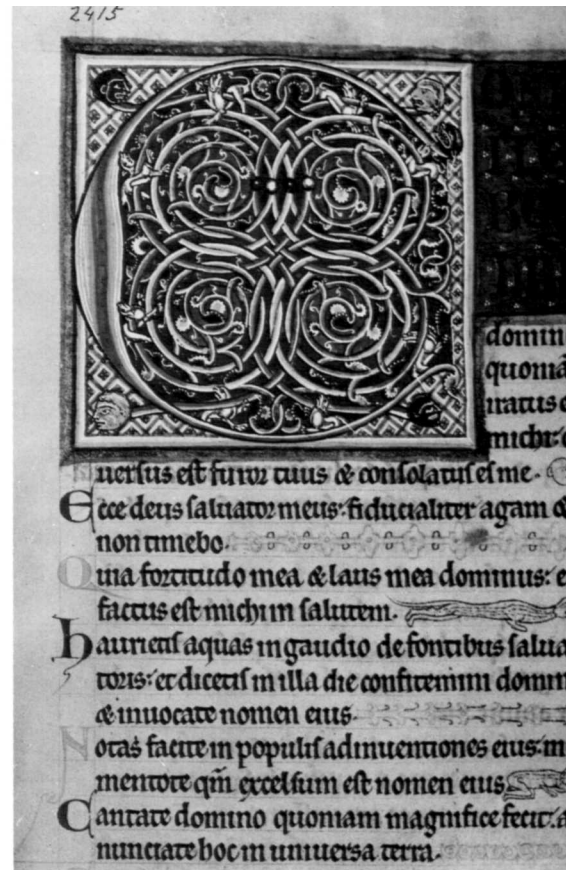 2415
C
domin
quoniā
iratus
michi
uersus est furor tuus & consolatus es me.
Ecce deus saluator meus: fiducialiter agam &
non timebo.
Quia fortitudo mea & laus mea dominus: e
factus est michi in salutem.
haurietis aquas in gaudio de fontibus salua
toris: et dicetis in illa die confitemini domin
& inuocate nomen eius.
Notas facite in populis adinuentiones eius: m
mentote qm̄ excelsum est nomen eius
Cantate domino quoniam magnifice fecit: a
nunciate hoc in uniuersa terra.